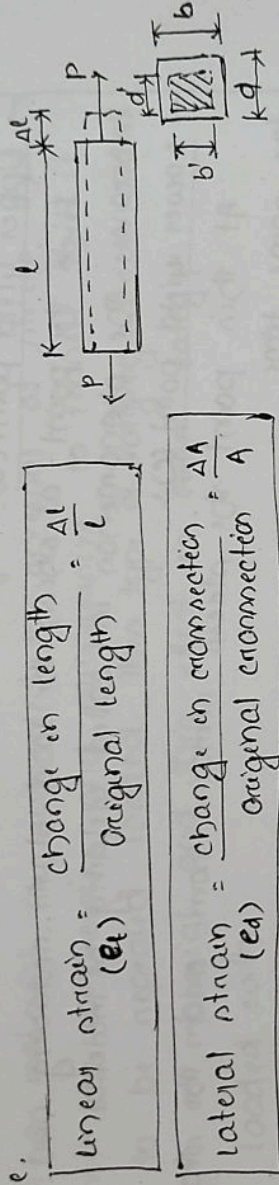 e.
linear strain = change in length / original length = Δl / l
(el)
lateral strain = change in crossection / original crossection = ΔA / A
(ed)
l Δl
P P
b
d'
b'
d